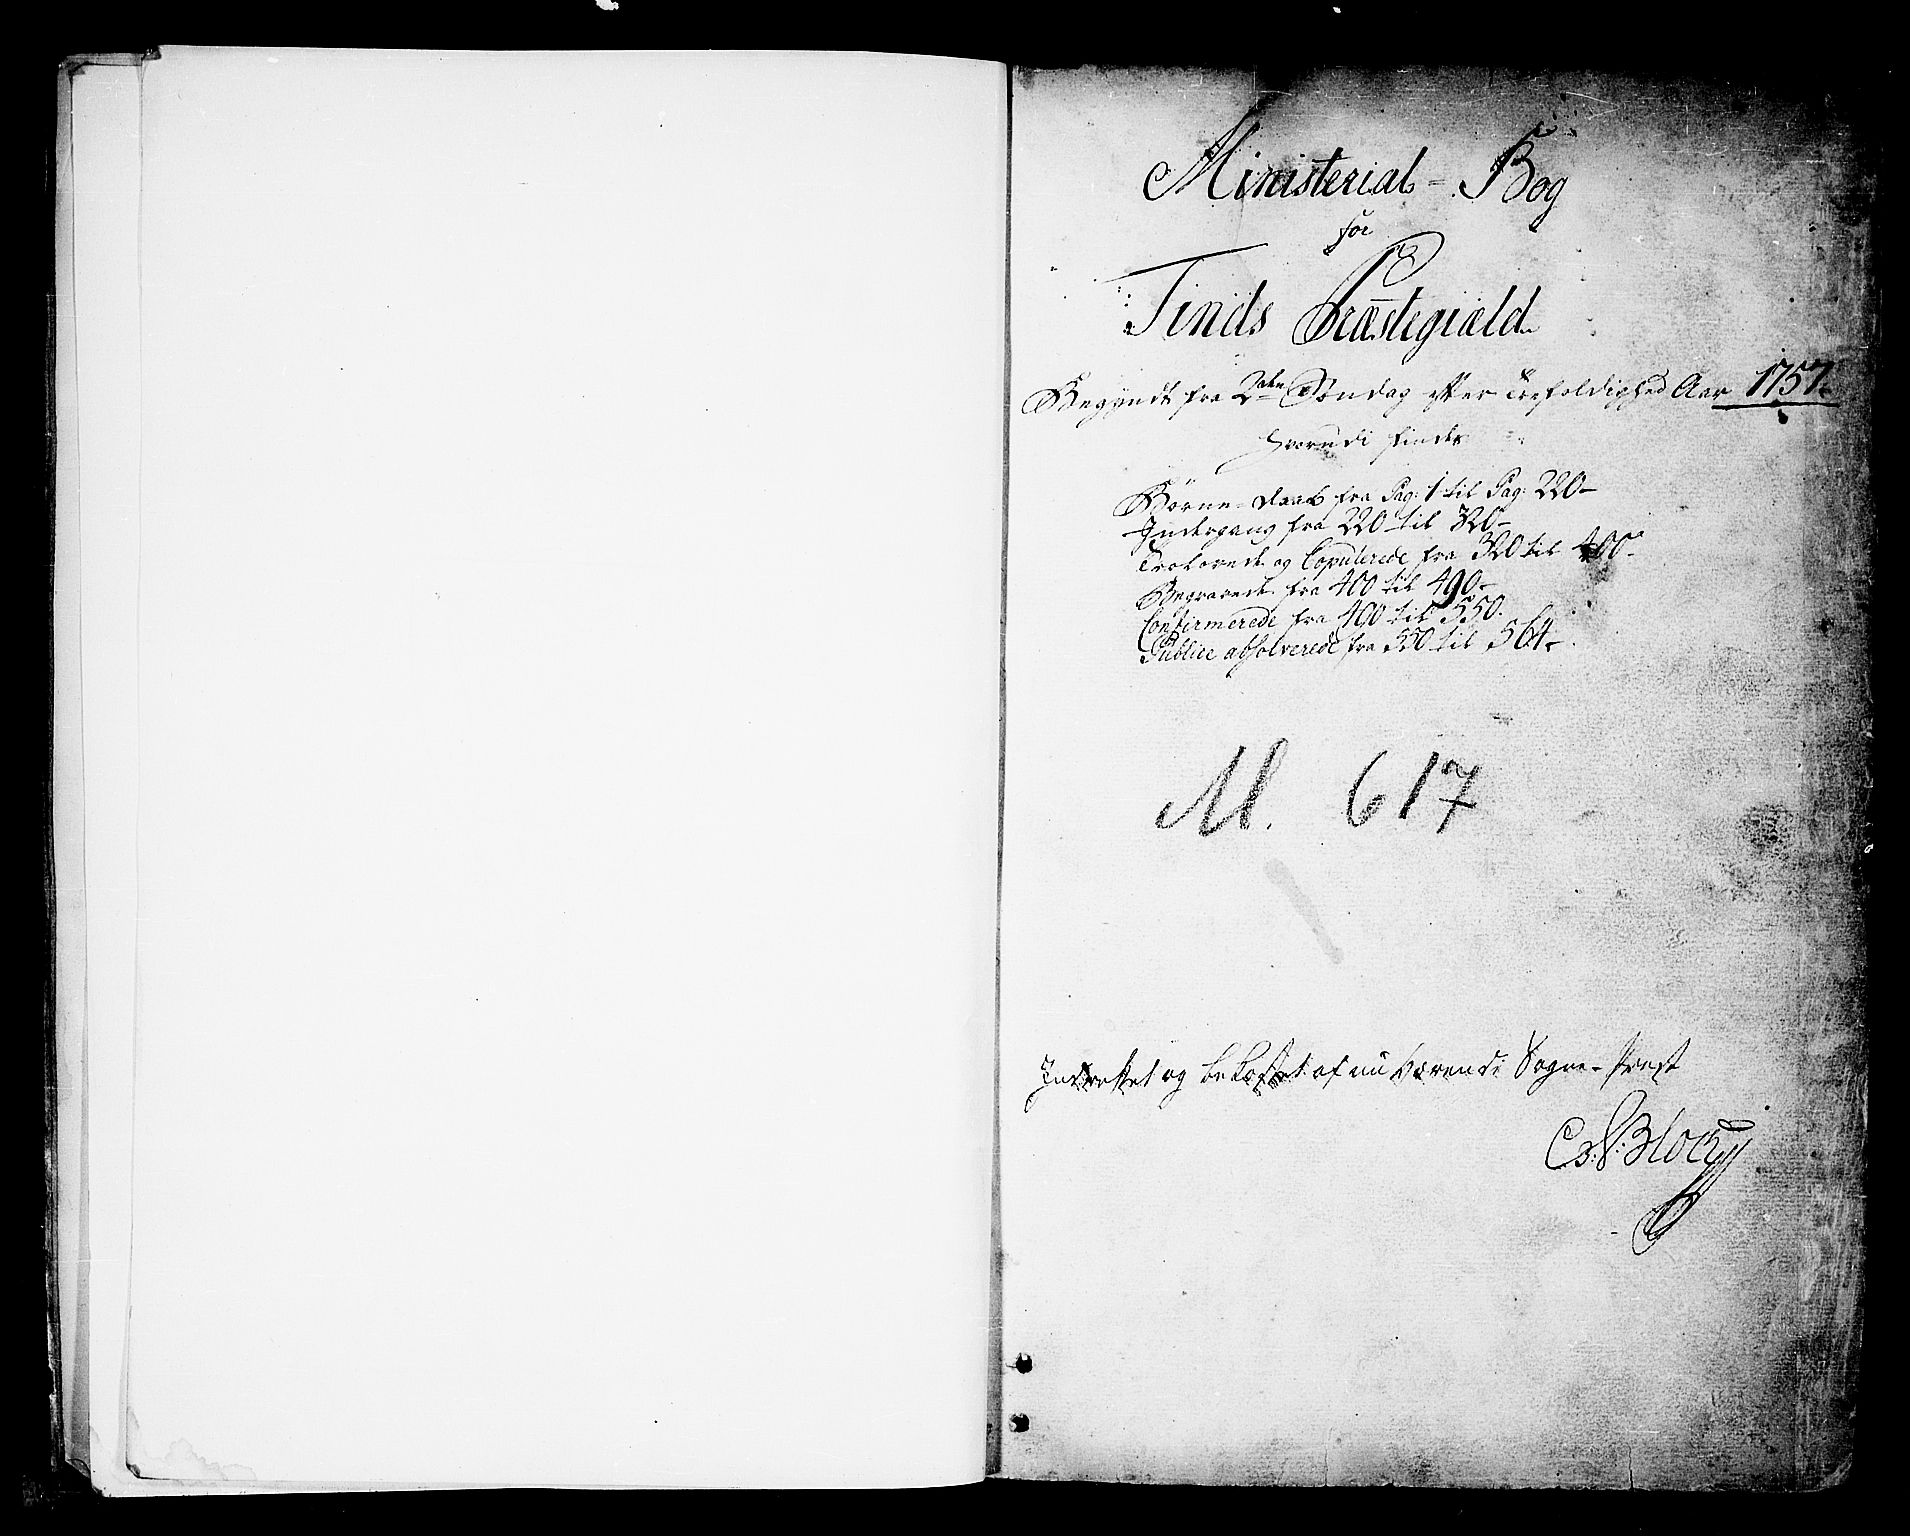 Ministerial-Bog
for
Tinds Præstegiæld
Begyndt fra 2den Søndag efter Trefoldighed Aar 1757.
hvorudi findes
Børne-daab fra Pag: 1 til Pag: 220-
Indergang fra 220 til 320-
Trolovede og Copulerede fra 320 til 400-
Begravede fra 400 til 490-
Confirmerede fra 490 til 550.
Publice absolverede fra 550 til 564-
M. 617
Indrettet og bekostet af nu værende Sogne-Præst